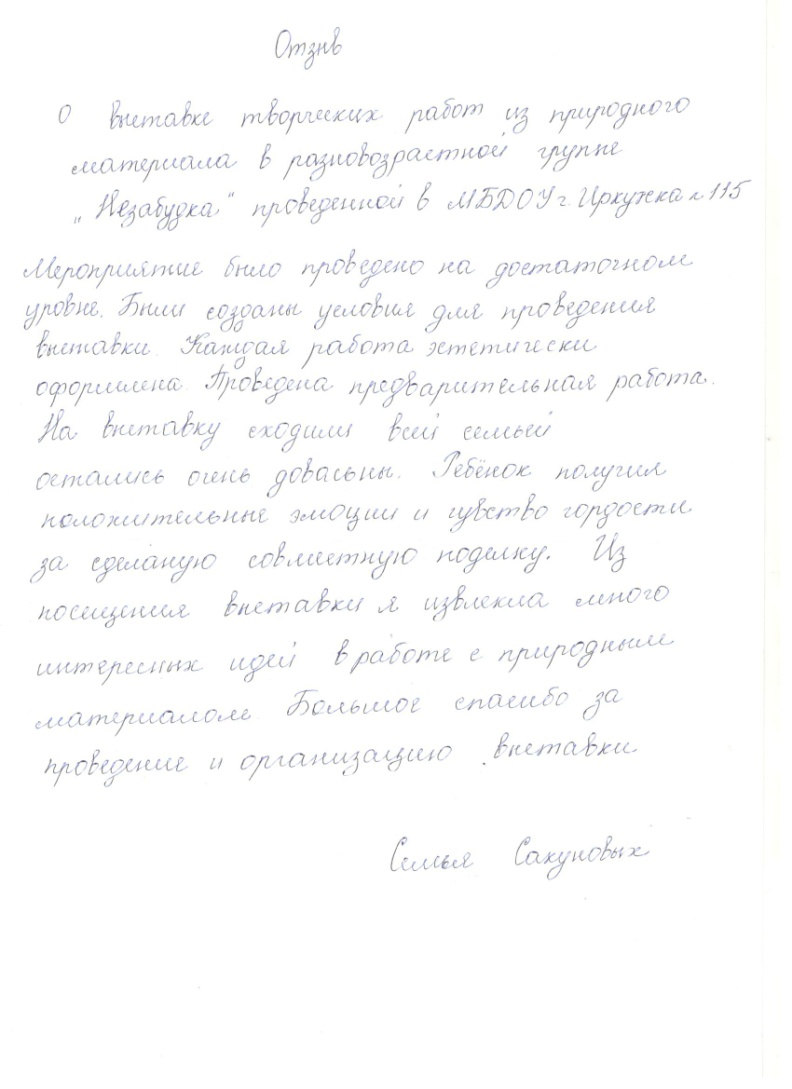 Отзыв
О выставке творческих работ из природного
материала в разновозрастной группе
„Незабудка" проведенной в МБДОУ г. Иркужка № 115
Мероприятие было проведено на достаточном
уровне. Были созданы условия для проведения
выставки. Каждая работа эстетически
оформлена. Проведена предварительная работа.
На выставку сходили всей семьей
остались очень довасьны. Ребёнок получил
положительные эмоции и чувство гордости
за сделаную совместную поделку. Из
посещения выставки я извлекла много
интересных идей в работе с природным
материалом Большое спасибо за
проведение и организацию выставки
Семья Сакуновых